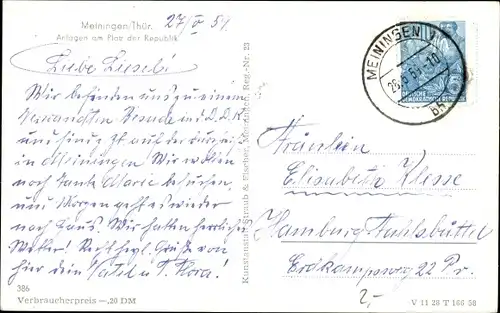 Meiningen/Thür.
Anlagen am Platz der Republik
27/V 59
Liebe Liesel!
Wir befinden uns zu einem
Verwandten Besuche in D.D.R.
und sind zt auf der durchreise
in Meiningen Wir wollen
noch Tante Marie besuchen,
und Morgen geht es wieder
nach Haus. Wir hatten herrliches
Wetter! Recht hzgl. Grüße von
hier dein Vater u. T. Kora!
386
Verbraucherpreis —,20 DM
Kunstanstalt Straub & Fischer, Meiningen, Reg.-Nr. 23
MEININGEN 1
DEUTSCHE
DEMOKRATISCHE REPUBLIK
Fräulein
Elisabeth Klesse
Hamburg Fuhlsbüttel
22 Pr.
2,-
V 11 28 T 166 58